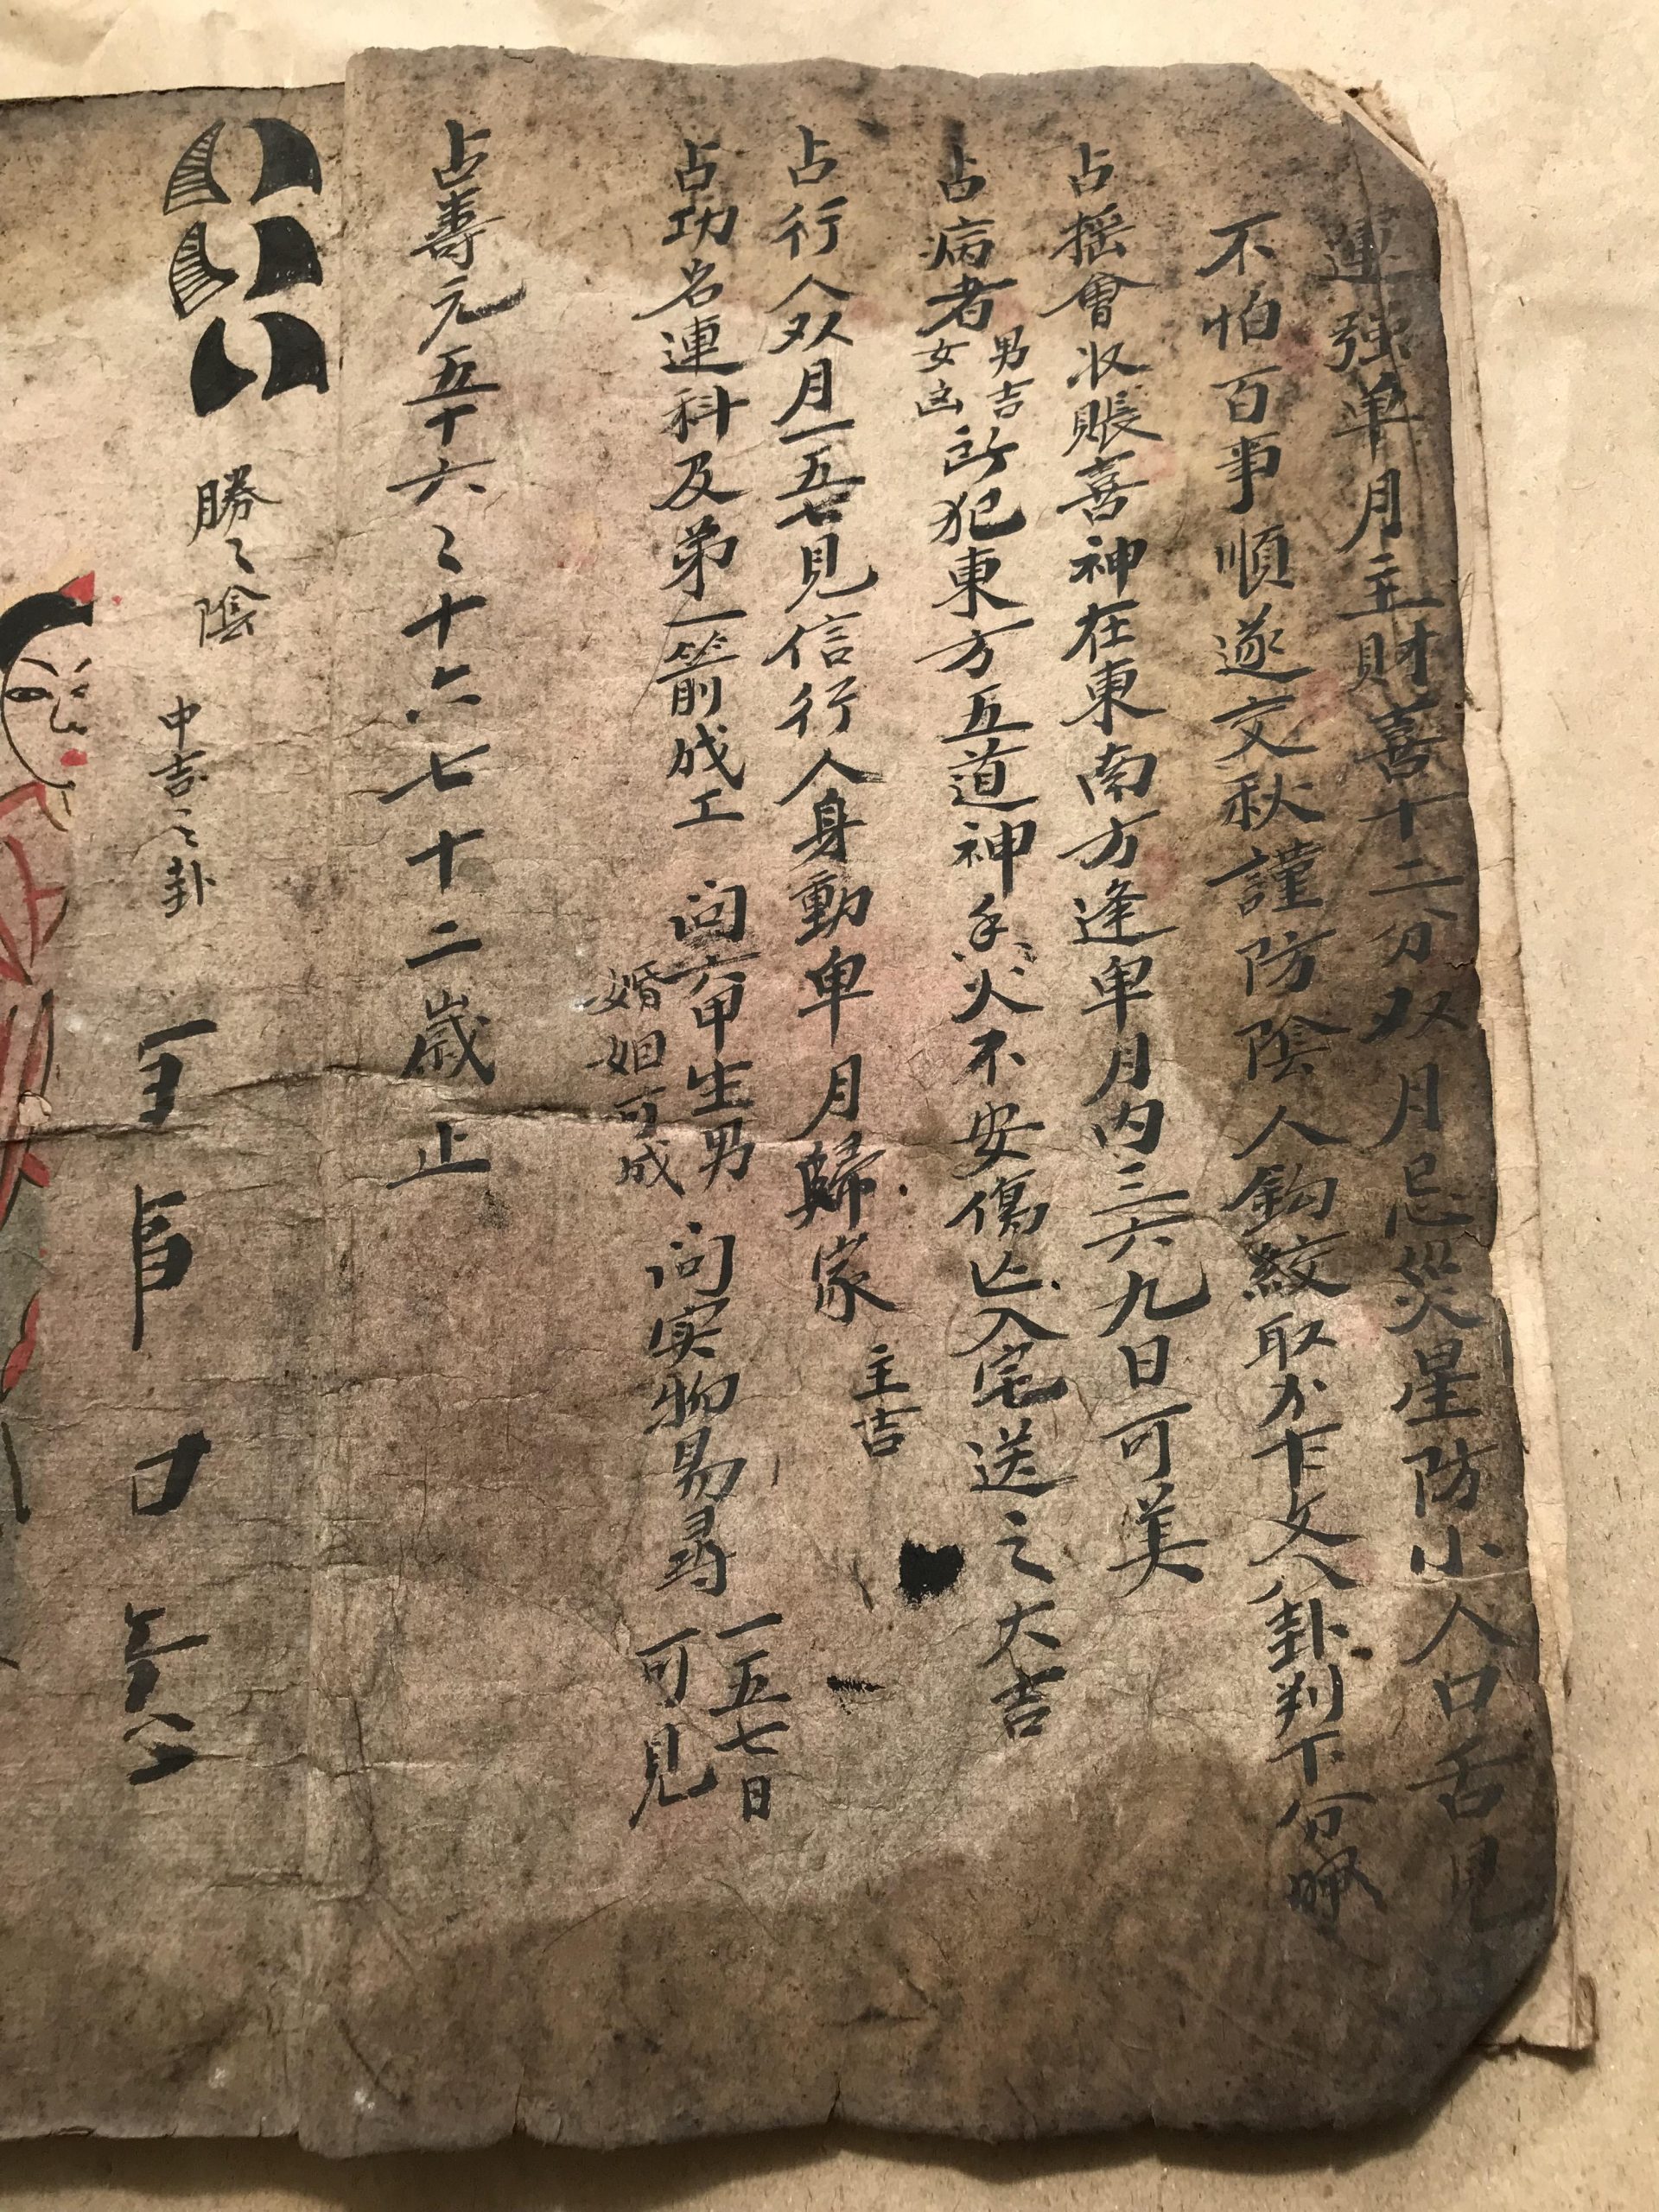 運強単月主財喜十二分双月忌災星防小人口舌見
不怕百事順遂交秋謹防陰人鈎絞取爻卞文八卦判下分
占揺會収賬喜神在東南方逢单月内三六九日可美
占病者男吉女凶所犯東方五道神香火不安傷亡入宅送之大吉
占行人双月一五七見信行人身動单月歸家 主吉
占功名連科及第一箭成工 问六甲生男 婚姻可成 问実物易尋 一五七日可見
占壽元五十六〻十六七十二歲止
勝〻陰 中吉之卦